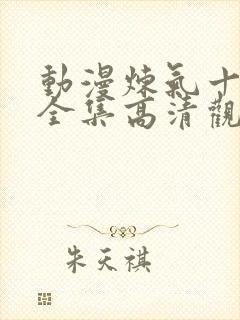 動漫煉氣十
全集高清觀
朱天祺